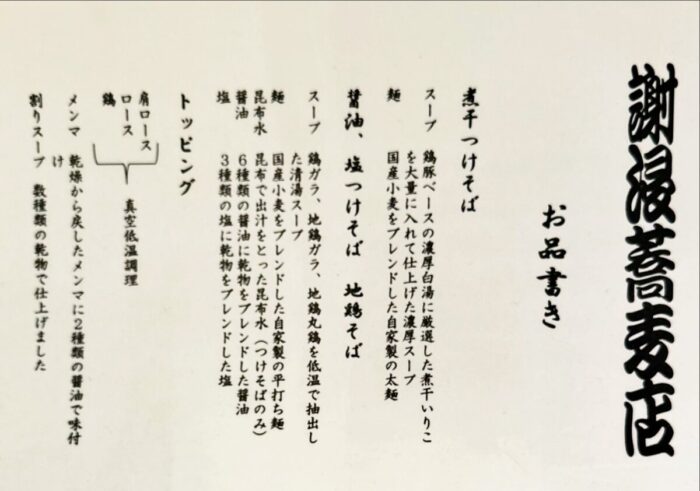 謝浸蕎麦店
お品書き
煮干つけそば
スープ 鶏豚ベースの濃厚白湯に厳選した煮干いりこ
を大量に入れて仕上げた濃厚スープ
麺 国産小麦をブレンドした自家製の太麺
醤油、塩つけそば 地鶏そば
スープ 鶏ガラ、地鶏ガラ、地鶏丸鶏を低温で抽出し
た清湯スープ
麺 国産小麦をブレンドした自家製の平打ち麺
昆布水 昆布で出汁をとった昆布水(つけそばのみ)
醤油 6種類の醤油に乾物をブレンドした醤油
塩 3種類の塩に乾物をブレンドした塩
トッピング
肩ロース
ロース
鶏
真空低温調理
メンマ 乾燥から戻したメンマに2種類の醤油で味付
け
割りスープ 数種類の乾物で仕上げました